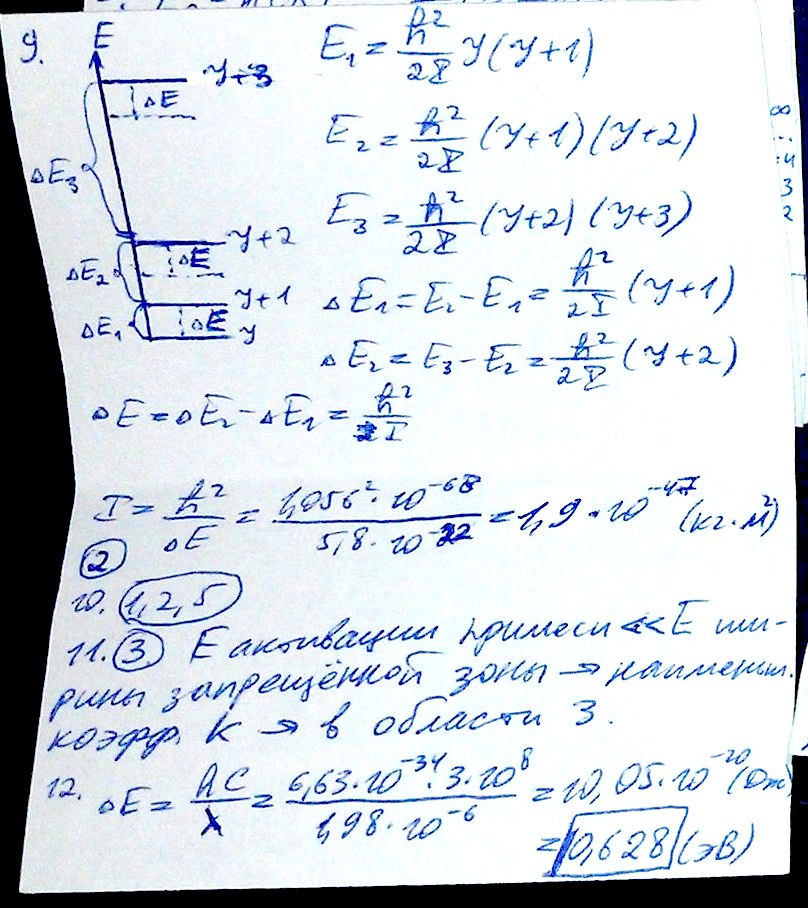 9.
E
y+3
ΔE
ΔE₃
y+2
ΔE
ΔE₂
y+1
ΔE
ΔE₁
y
E₁ = ħ²/2I y(y+1)
E₂ = ħ²/2I (y+1)(y+2)
E₃ = ħ²/2I (y+2)(y+3)
ΔE₁ = E₂ - E₁ = ħ²/2I (y+1)
ΔE₂ = E₃ - E₂ = ħ²/2I (y+2)
ΔE = ΔE₂ - ΔE₁ = ħ²/I
I = ħ²/ΔE = 1,056²·10⁻⁶⁸/5,8·10⁻²² = 1,9·10⁻⁴⁷ (кг·м²)
2
10. 1,2,5
11. 3 E активации примеси << E ши-
рины запрещённой зоны → наименьш.
коэфф. K → в области 3.
12. ΔE = hC/λ = 6,63·10⁻³⁴·3·10⁸/1,98·10⁻⁶ = 10,05·10⁻²⁰ (Дж)
= 0,628 (эВ)